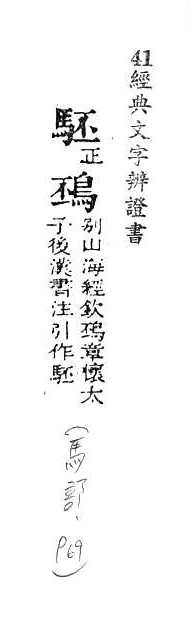 41經典文字辨證書
駓正䲹別山海經欽䲹章懷太
子後漢書注引作駓
(馬部、P69)